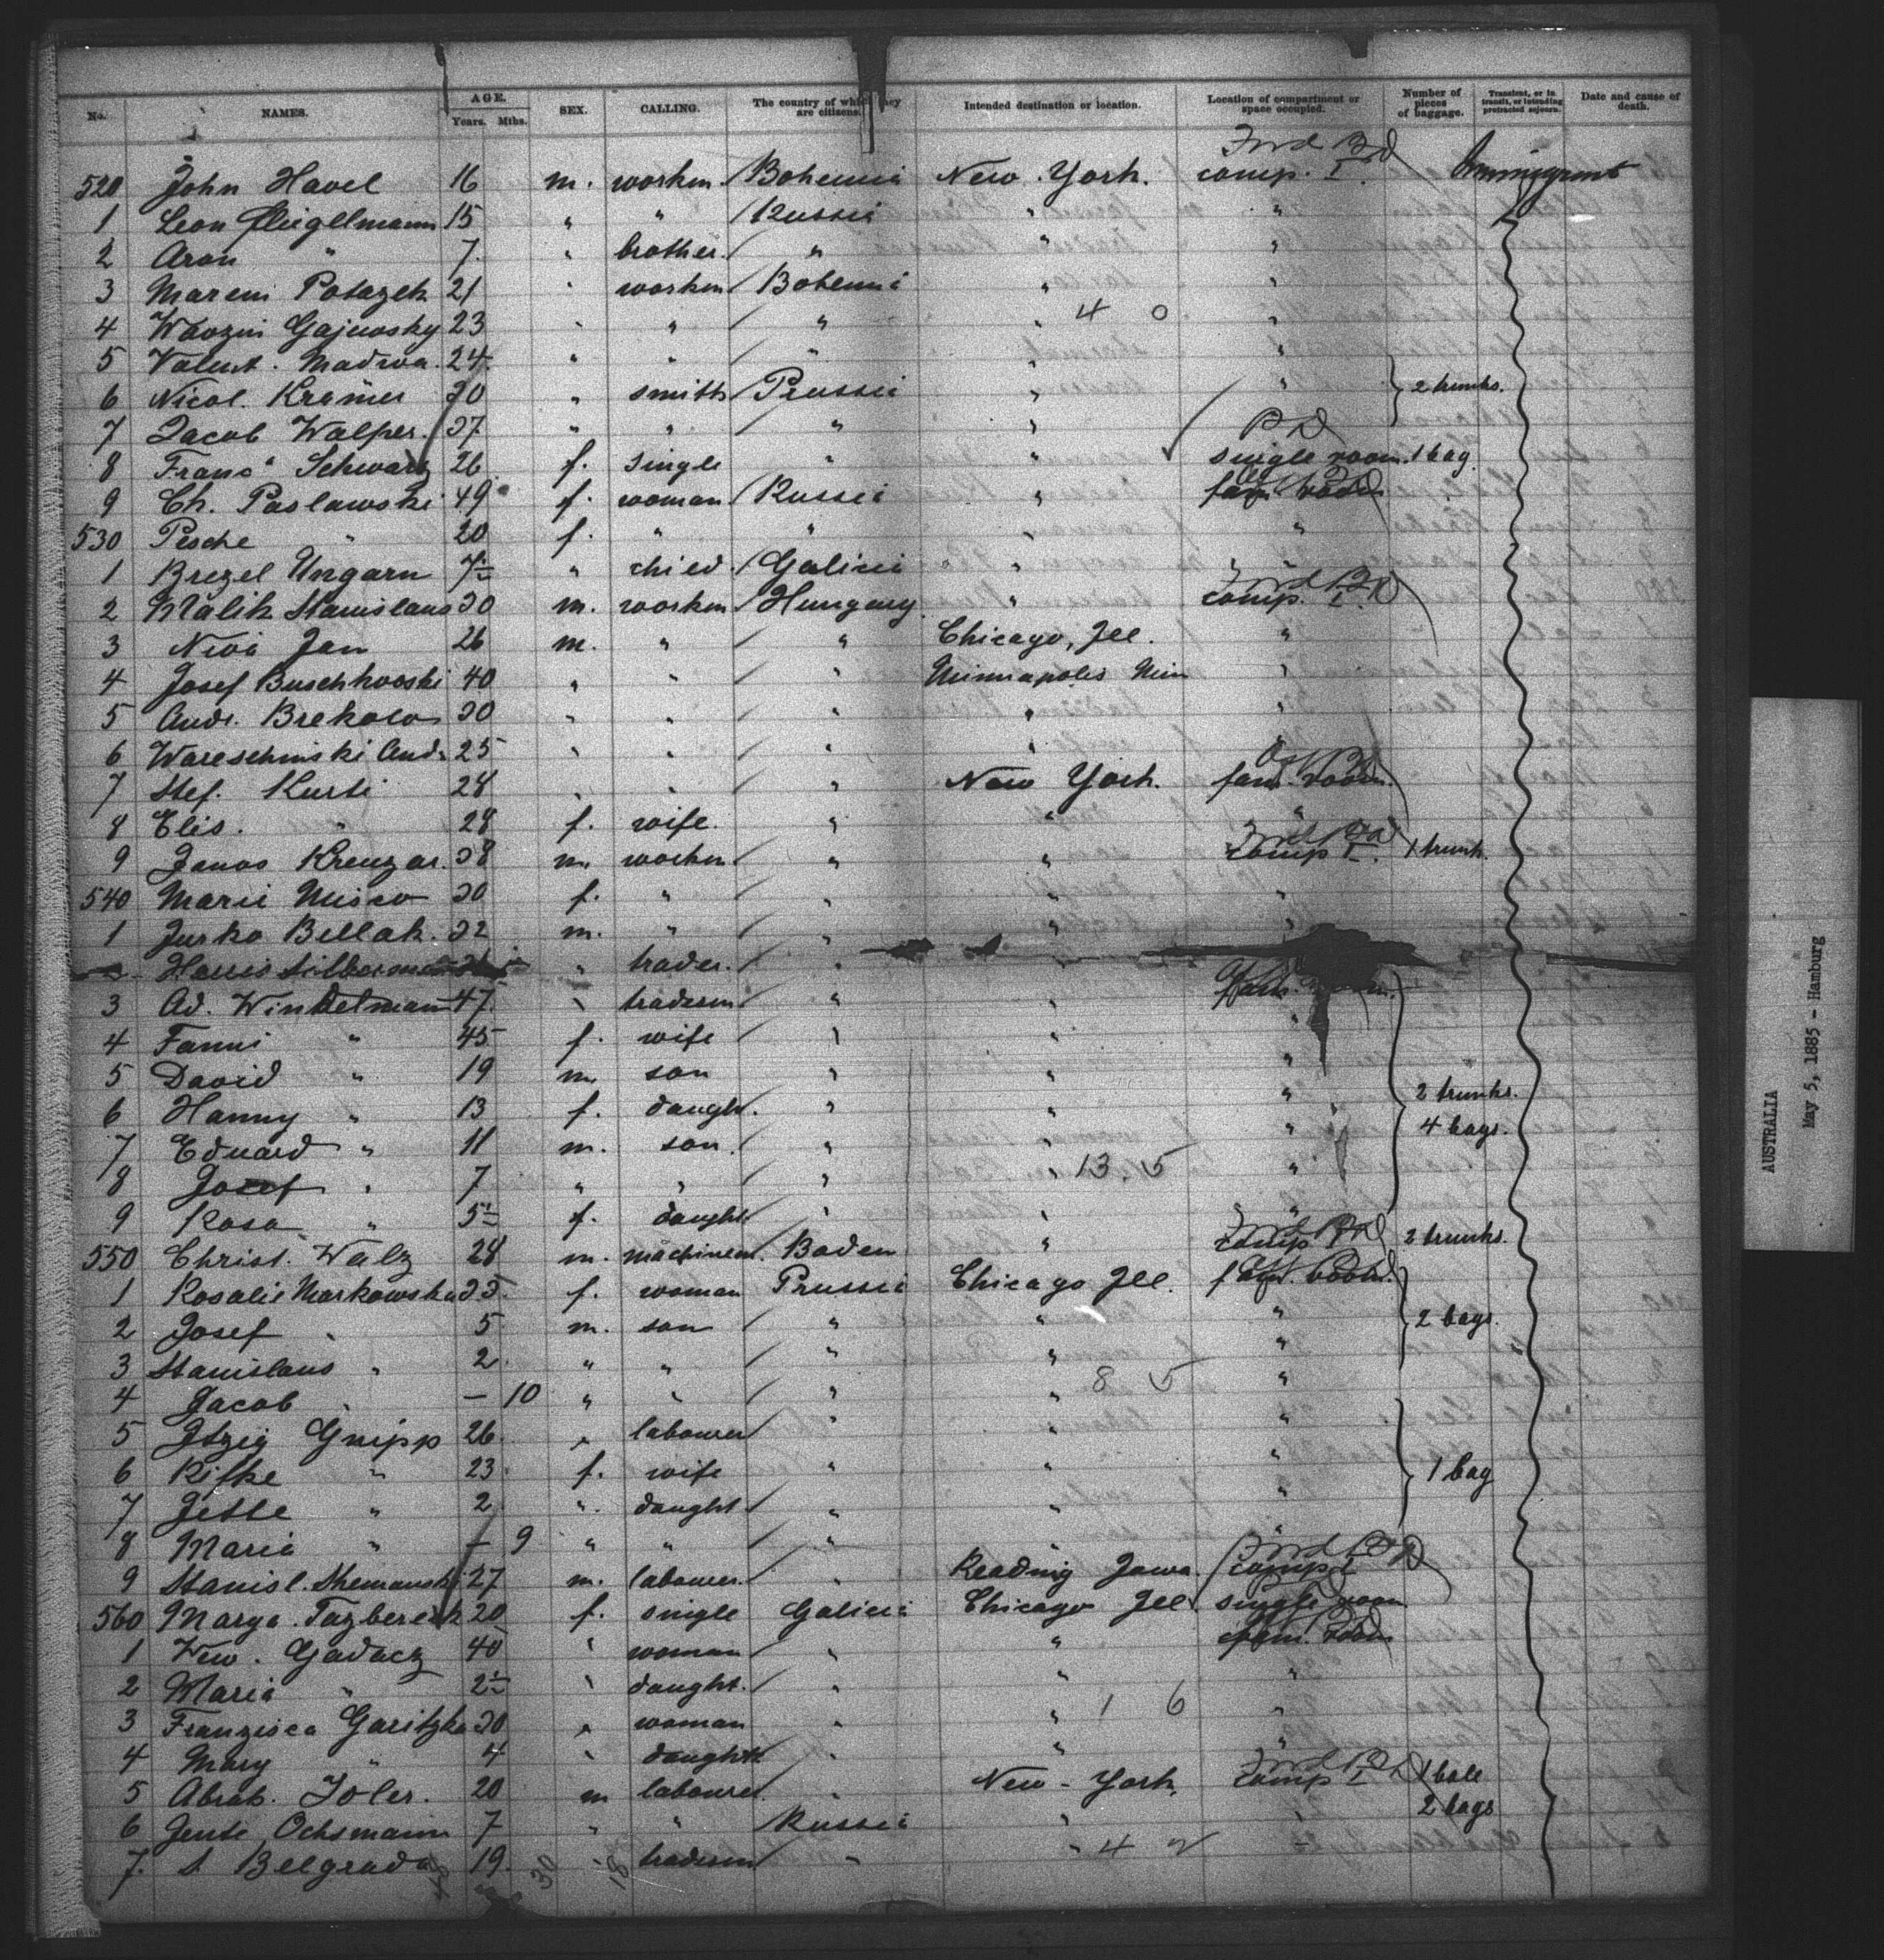 No. NAMES. AGE. Years. Mths. SEX. CALLING. The country of which they are citizens. Intended destination or location. Location of compartment or space occupied. Number of pieces of baggage. Transient, or in transit, or intending protracted sojourn. Date and cause of death.
520 John Havel 16 m. workm. Bohemia New York. comp. I. Immigrant
1 Leon Fleigllmann 15 " " Russia " "
2 Aron " 7. " brother. " " "
3 Mareni Potazek 21 " workm Bohemia " "
4 Wavzin Gajewsky 23 " " " " 4 0 "
5 Valent. Madwa. 24 " " " " "
6 Nicol. Krämer 30 " smith Prussia " " 2 trunks.
7 Jacob Walper. 37 " " " "
8 Franc. Schwarz 26 f. single " " single room. 1 bag
9 Ch. Paslawski 49 f. woman Russia " fam. room
530 Pesche " 20 f. " " " "
1 Brezel Ungarn 7 " child. Galicia " "
2 Malik Stanislaus 30 m. workm. Hungary " comp. I.
3 Nivi Jan 26 m. " " Chicago, Ill. "
4 Josef Buschkowski 40 " " " Minneapolis Min "
5 Andr. Brekolow 30 " " " " "
6 Wareschinski Andr. 25 " " " " "
7 Stef. Kurti 28 " " " New York. fam. room.
8 Elis. " 28 f. wife. " " "
9 Janos Krenzar. 38 m. workm " " comp I. 1 trunk.
540 Marie Misco 30 f. " " " "
1 Jurko Bellak. 32 m. " " " "
Harris Silberman " trader. " "
3 Ad. Winkelmann 47. " tradesm " " fam. room.
4 Fanni " 45 f. wife " " "
5 David " 19 m. son " " "
6 Hanny " 13 f. daught. " " " 2 trunks.
7 Eduard " 11 m. son. " " " 4 bags.
8 Josef " 7 " " " " 13. 5 "
9 Rosa " 5 f. daught " " "
550 Christ. Walz 28 m. machinem. Baden " comp 2 trunks.
1 Rosalie Markowska 35. f. woman Prussia Chicago Ill. fam. room.
2 Josef " 5 m. son " " " 2 bags.
3 Stanislaus " 2. " " " " "
4 Jacob " — 10 " " " " 8 5 "
5 Itzig Gnipp 26. " labourer " " "
6 Rifke " 23. f. wife " " " 1 bag
7 Jette " 2. " daught. " " "
8 Maria " — 9 " " " "
9 Stanisl. Shemanski 27 m. labourer. " Reading Iowa. comp I
560 Marga. Tazbereck 20 f. single Galicia Chicago Ill. single room
1 Wew. Gadacz 40 " woman " " fam. room
2 Maria " 2 " daught. " " "
3 Franzisca Garitzka 30 " woman " " 1 6 "
4 Mary " 4 " daught " " "
5 Abrah. Toler. 20 m labourer. " New-York, comp I 1 bale
6 Gente Ochsmann 7 " " Russia " " 2 bags
7. S Belgrada 19. " tradesm " " 4 2 "
30 18
AUSTRALIA
May 5, 1885 - Hamburg